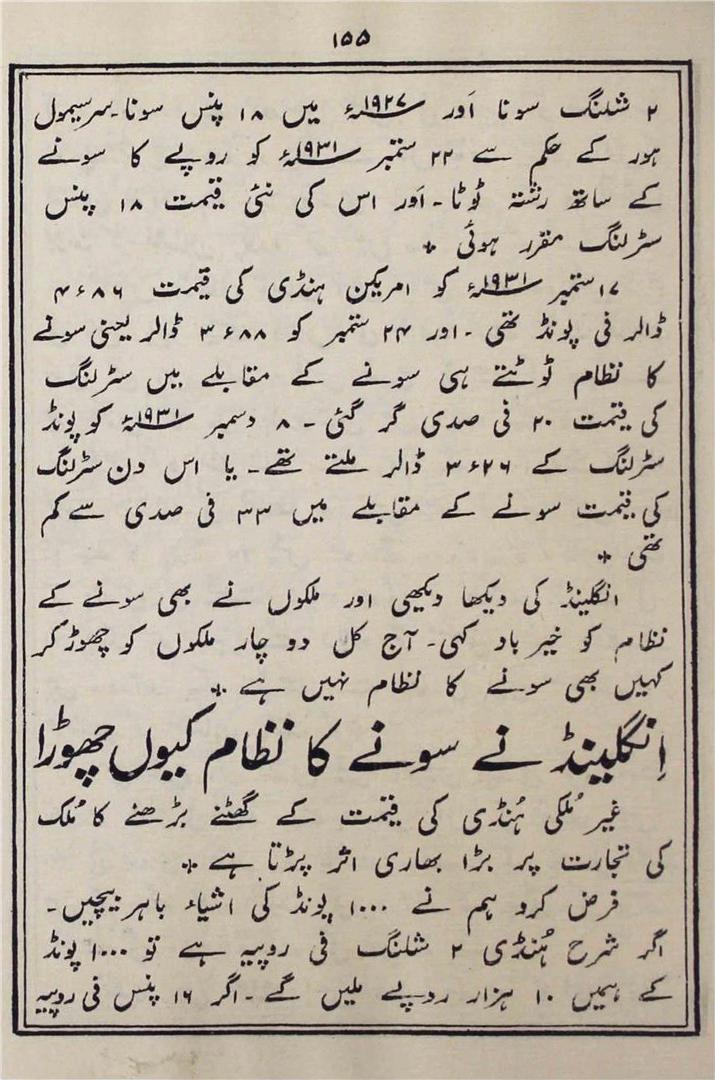 ۱۵۵
۲ شلنگ سونا اَور ۱۹۲۷ء میں ۱۸ پنس سونا۔ سرسیمول
ہور کے حکم سے ۲۲ ستمبر ۱۹۳۱ء کو روپے کا سونے
کے ساتھ رشتہ ٹوٹا۔ اَور اس کی نئی قیمت ۱۸ پنس
سٹرلنگ مقرر ہوئی *
۱۷ ستمبر ۱۹۳۱ء کو امریکن ہنڈی کی قیمت ۴ء۸۶
ڈالر فی پونڈ تھی ۔ اور ۲۴ ستمبر کو ۳ء۸۸ ڈالر یعنی سونے
کا نظام ٹوٹتے ہی سونے کے مقابلے میں سٹرلنگ
کی قیمت ۲۰ فی صدی گر گئی ۔ ۸ دسمبر ۱۹۳۱ء کو پونڈ
سٹرلنگ کے ۳ء۲۶ ڈالر ملتے تھے۔ یا اس دن سٹرلنگ
کی قیمت سونے کے مقابلے میں ۳۳ فی صدی سے کم
تھی *
انگلینڈ کی دیکھا دیکھی اور ملکوں نے بھی سونے کے
نظام کو خیر باد کہی۔ آج کل دو چار ملکوں کو چھوڑ کر
کہیں بھی سونے کا نظام نہیں ہے *
اِنگلینڈ نے سونے کا نظام کیوں چھوڑا
غیر مُلکی ہُنڈی کی قیمت کے گھٹنے بڑھنے کا مُلک
کی تجارت پر بڑا بھاری اثر پڑتا ہے *
فرض کرو ہم نے ۱۰۰۰ پونڈ کی اشیاء باہر بیچیں۔
اگر شرح ہُنڈی ۲ شلنگ فی روپیہ ہے تو ۱۰۰۰ پونڈ
کے ہمیں ۱۰ ہزار روپے ملیں گے ۔ اگر ۱۶ پنس فی روپیہ